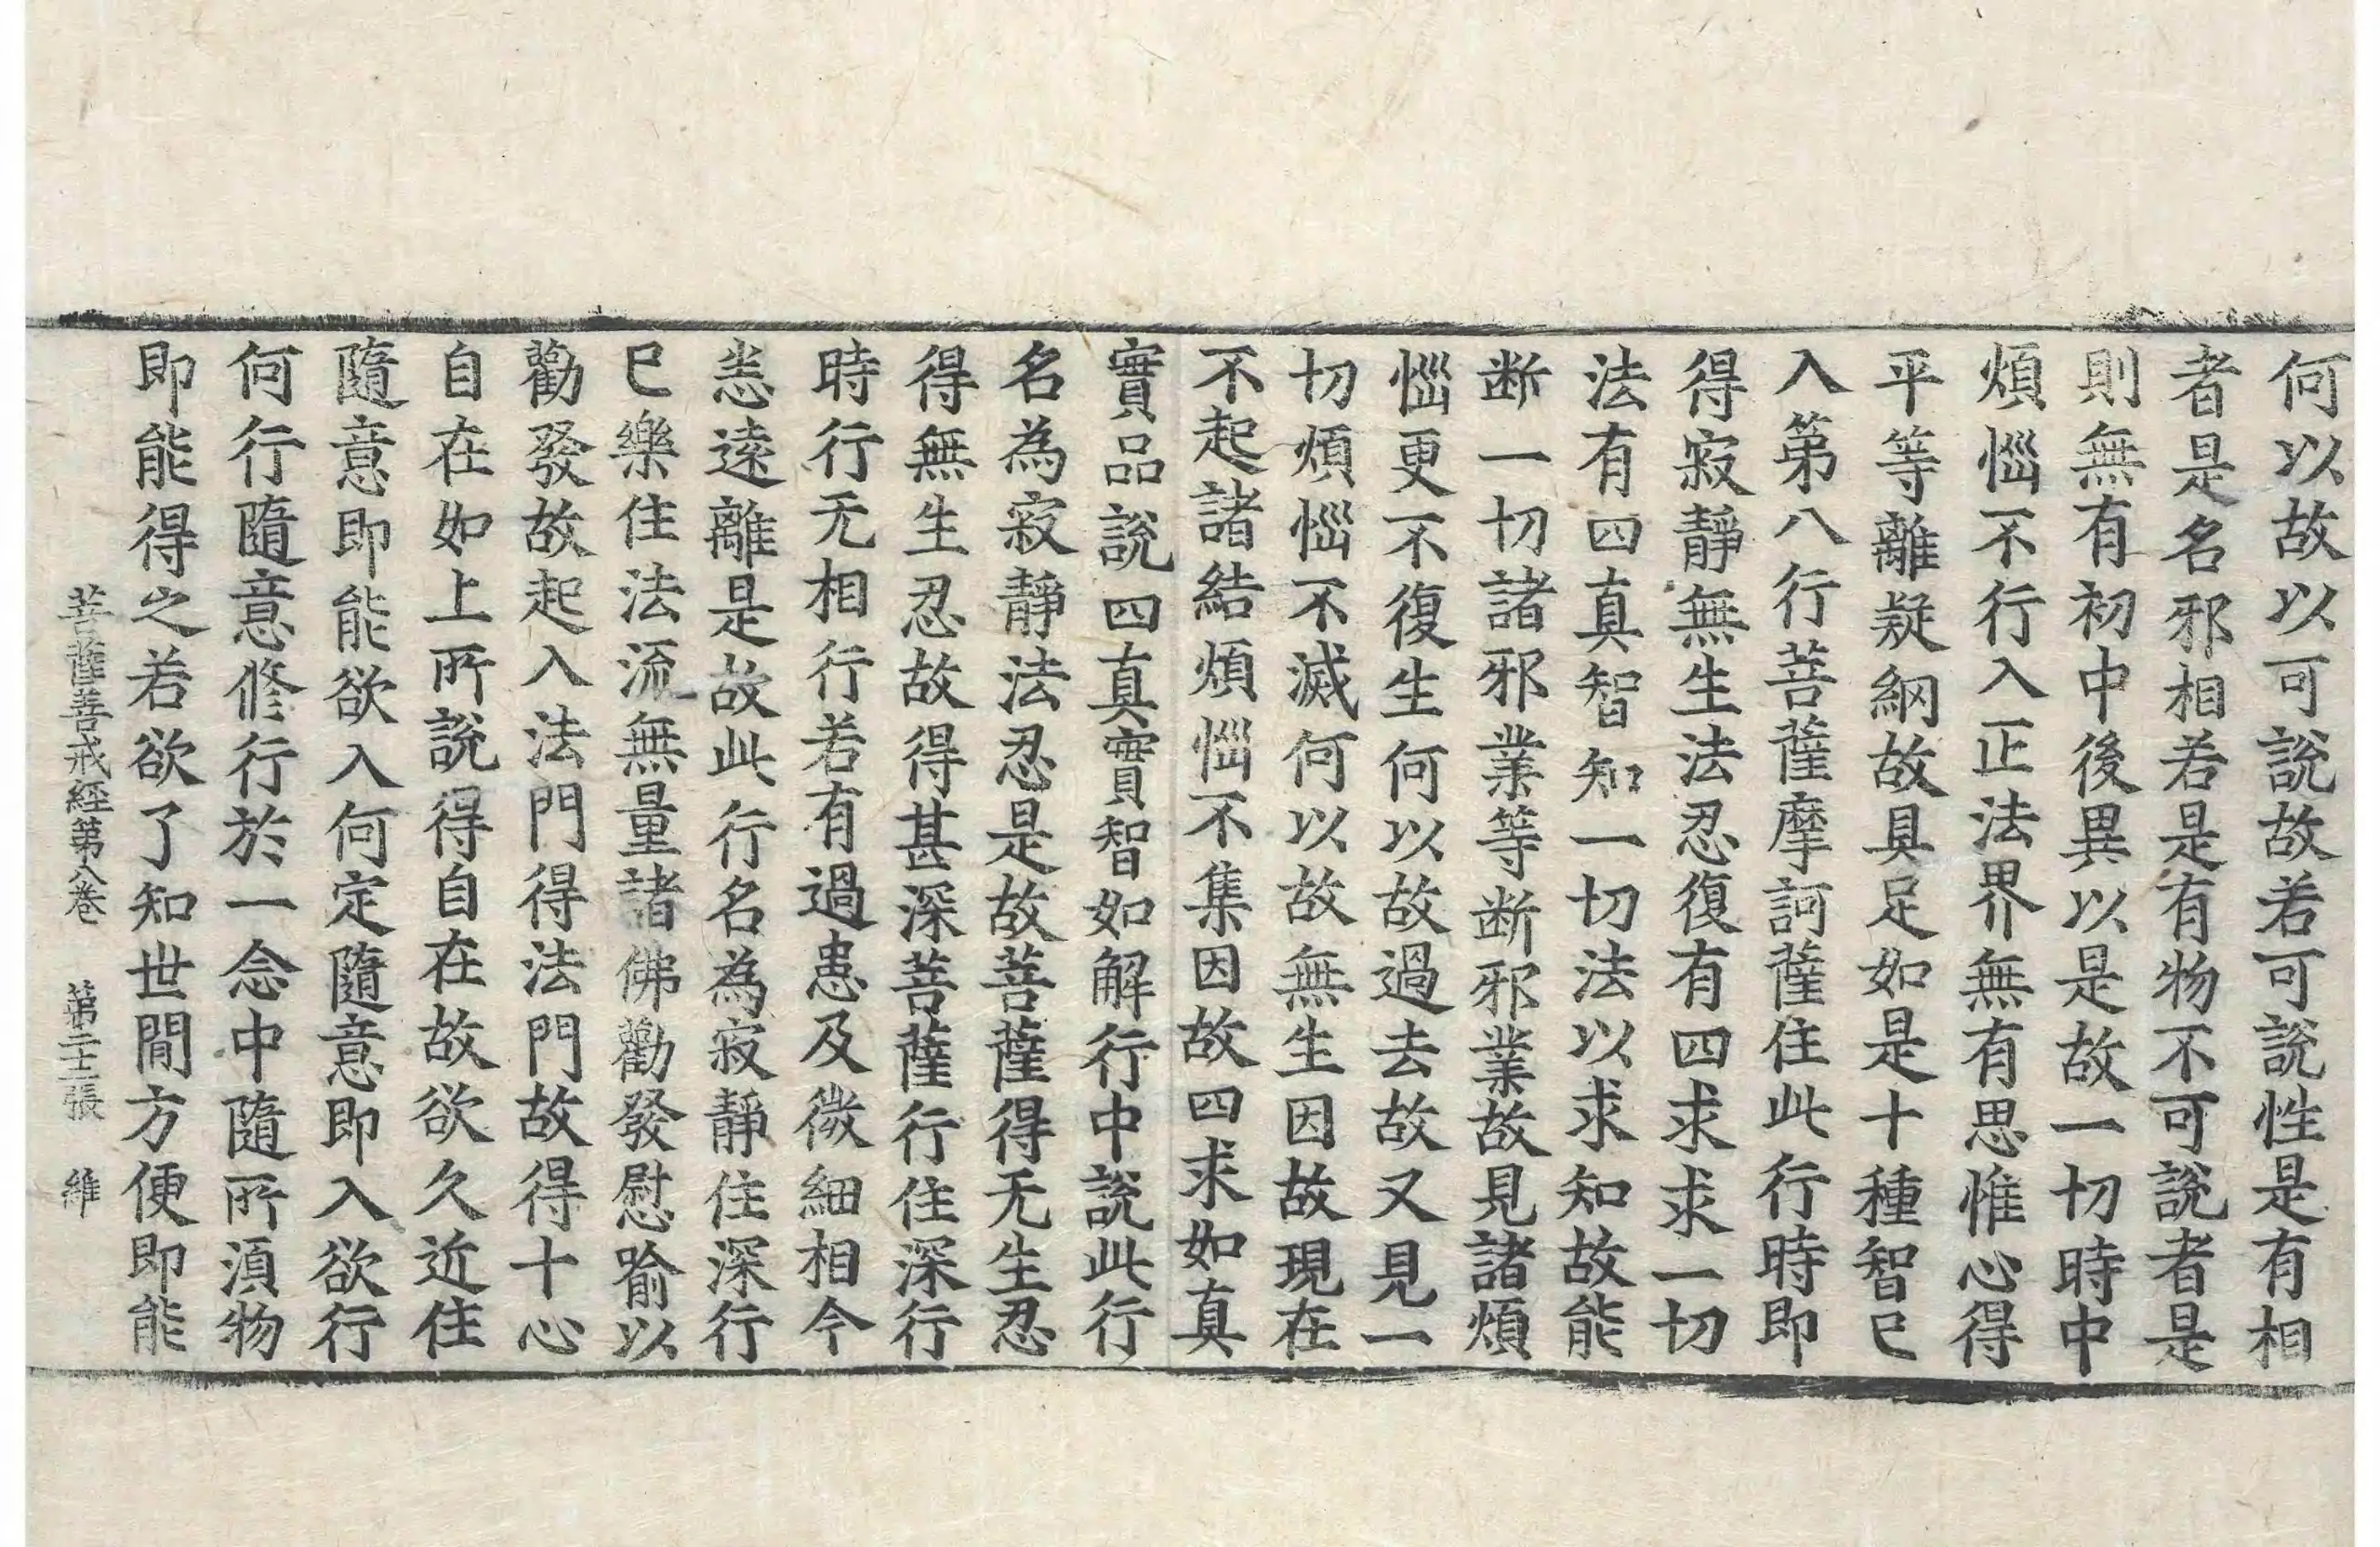 何以故以可說故若可說性是有相
者是名邪相若是有物不可說者是
則無有初中後異以是故一切時中
煩惱不行入正法界無有思惟心得
平等離疑網故具足如是十種智已
入第八行菩薩摩訶薩住此行時即
得寂靜無生法忍復有四求求一切
法有四真智知一切法以求知故能
断一切諸邪業等断邪業故見諸煩
惱更不復生何以故過去故又見一
切煩惱不滅何以故無生因故現在
不起諸結煩惱不集因故四求如真
實品說四真實智如解行中說此行
名為寂靜法忍是故菩薩得无生忍
得無生忍故得甚深菩薩行住深行
時行无相行若有過患及微細相今
悉遠離是故此行名為寂靜住深行
已樂住法流無量諸佛勸發慰喻以
勸發故起入法門得法門故得十心
自在如上所說得自在故欲久近住
隨意即能欲入何定隨意即入欲行
何行隨意修行於一念中隨所須物
即能得之若欲了知世間方便即能
菩薩善戒經第八卷 第二十二張 維